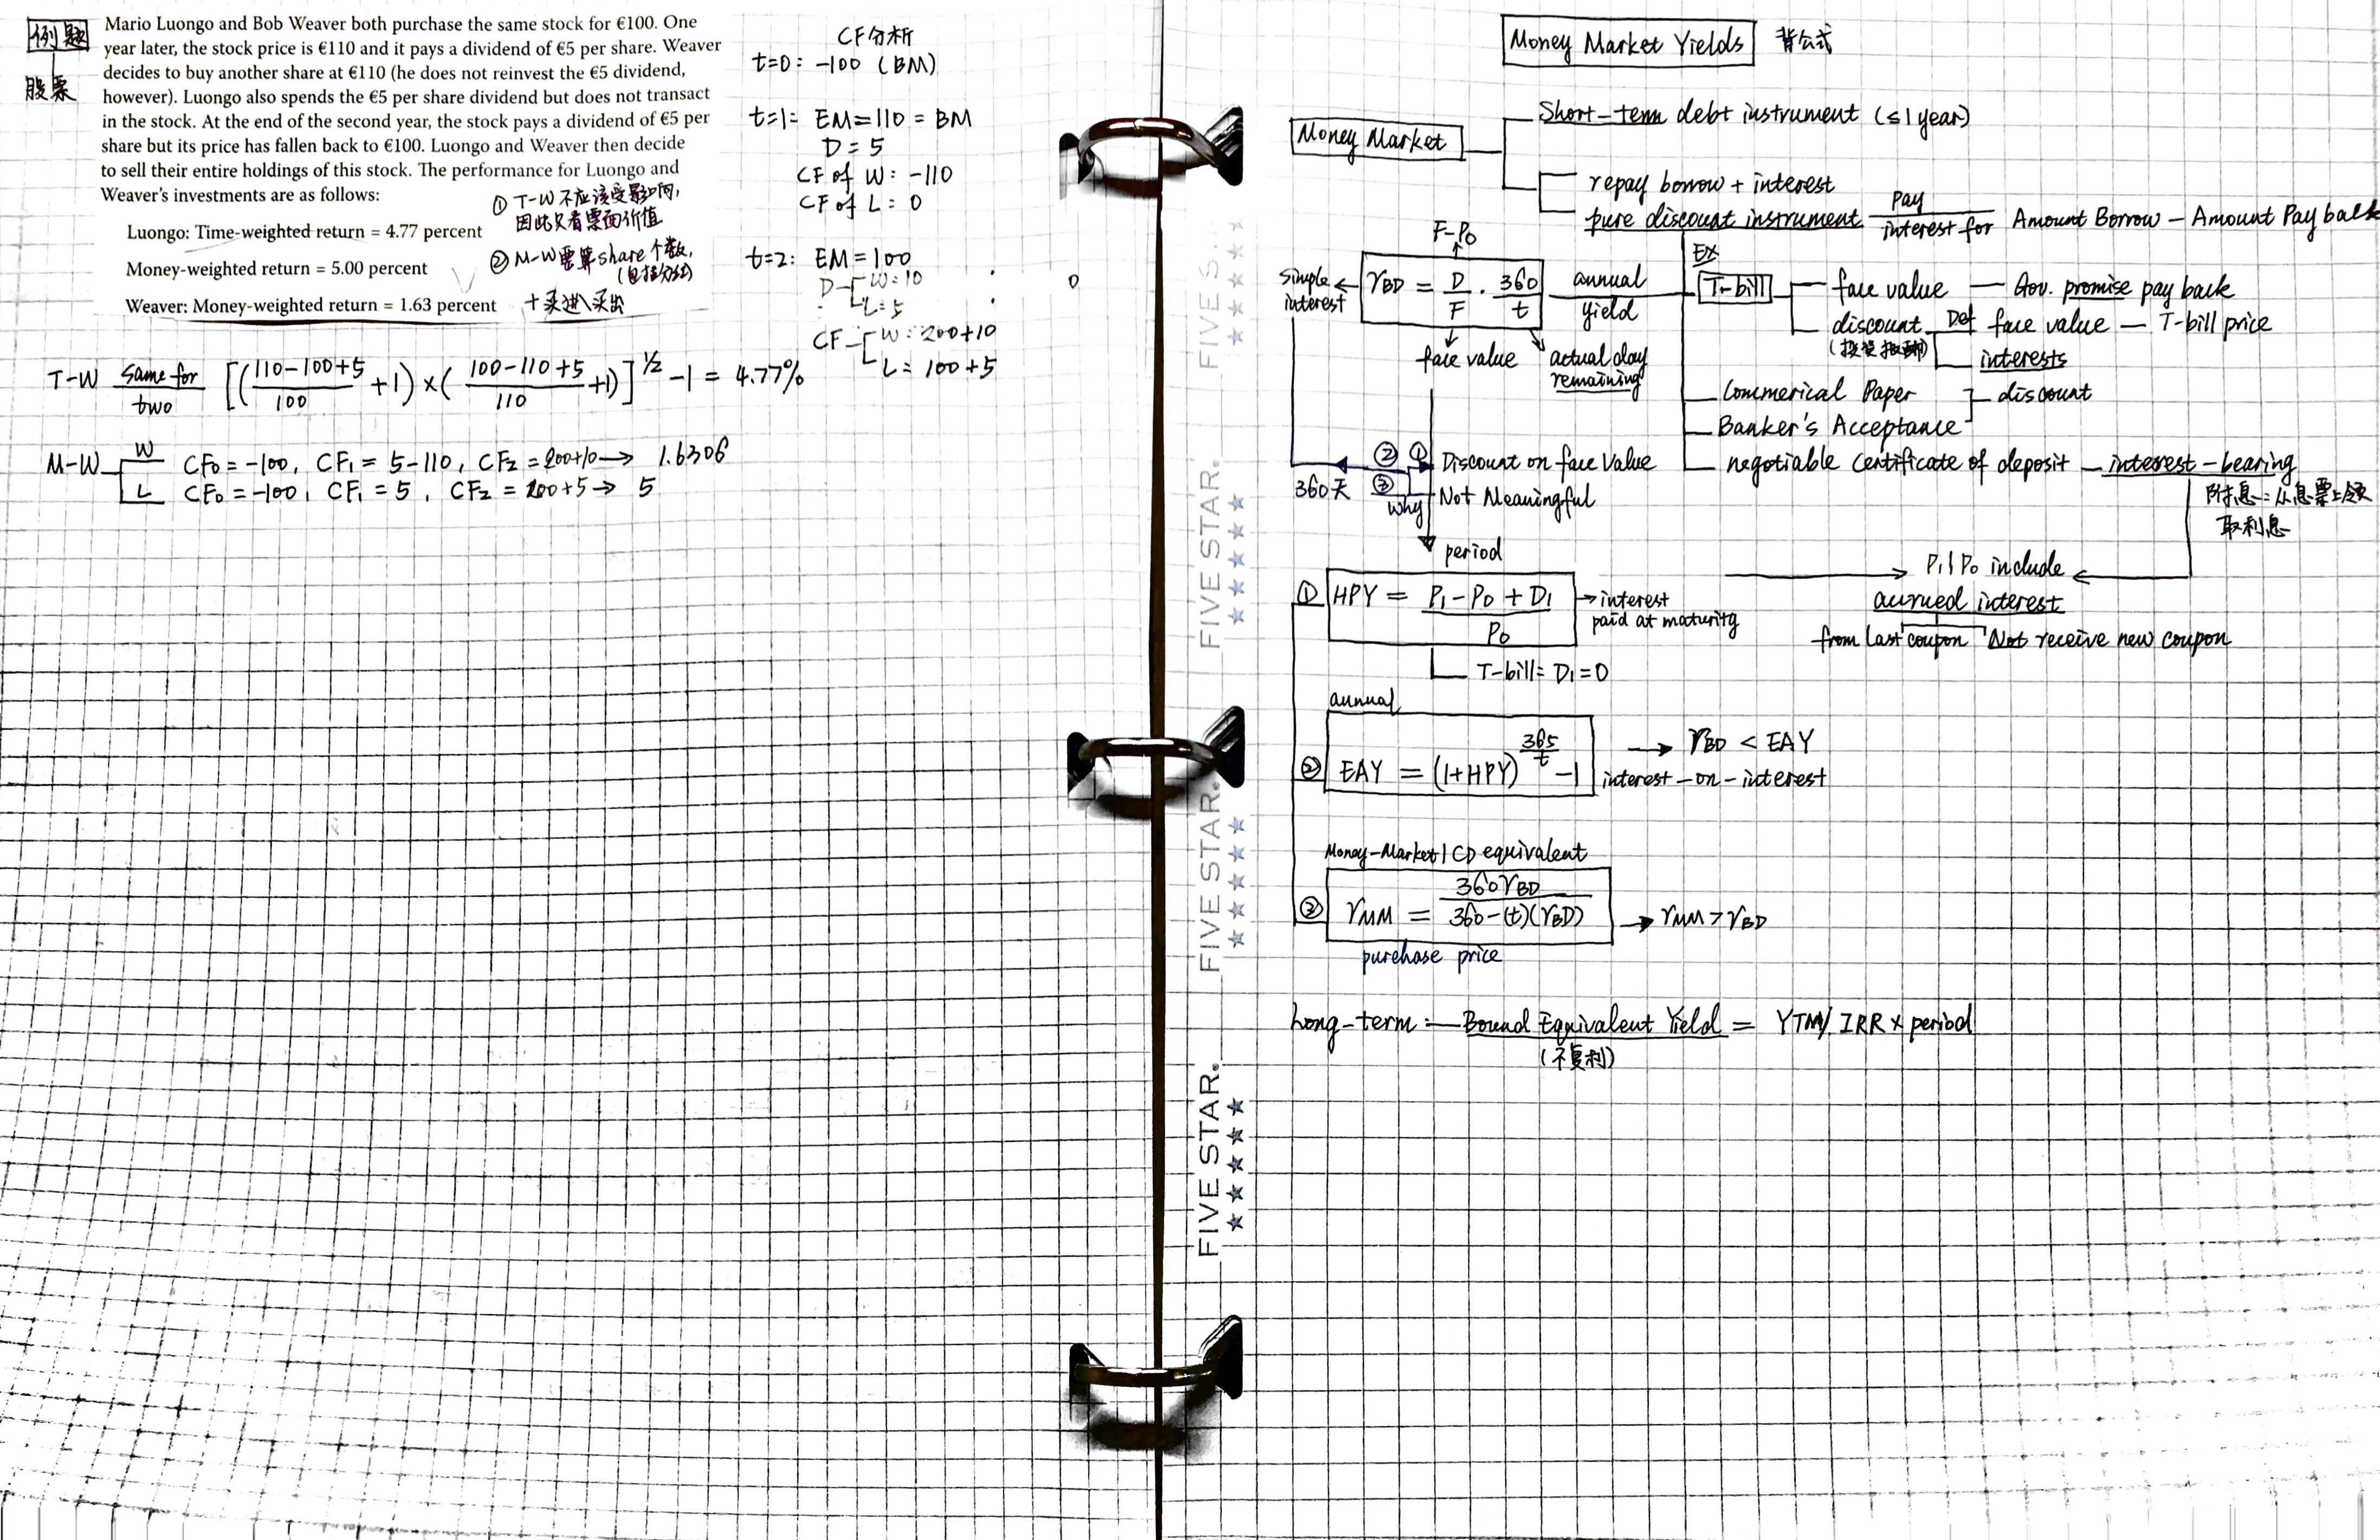 例题
股票
Mario Luongo and Bob Weaver both purchase the same stock for €100. One
year later, the stock price is €110 and it pays a dividend of €5 per share. Weaver
decides to buy another share at €110 (he does not reinvest the €5 dividend,
however). Luongo also spends the €5 per share dividend but does not transact
in the stock. At the end of the second year, the stock pays a dividend of €5 per
share but its price has fallen back to €100. Luongo and Weaver then decide
to sell their entire holdings of this stock. The performance for Luongo and
Weaver's investments are as follows:
Luongo: Time-weighted return = 4.77 percent
Money-weighted return = 5.00 percent
Weaver: Money-weighted return = 1.63 percent
① T-W 不应该受影响,
因此只看票面价值
② M-W要算share个数,
(包括分红)
+买进\买出
CF分析
t=0: -100 (BM)
t=1: EM=110 = BM
D = 5
CF of W: -110
CF of L: 0
t=2: EM=100
D W: 10
L: 5
CF W: 200+10
L: 100+5
0
T-W same for two [((110-100+5)/100 +1) × ((100-110+5)/110 +1)]^1/2 -1 = 4.77%
M-W W CF0 = -100, CF1 = 5-110, CF2 = 200+10 → 1.6306
L CF0 = -100, CF1 = 5, CF2 = 100+5 → 5
FIVE STAR.
FIVE STAR.
FIVE STAR.
FIVE STAR.
FIVE STAR.
Money Market Yields 背公式
Money Market
Short-term debt instrument (≤1 year)
repay borrow + interest
pure discount instrument pay interest for Amount Borrow - Amount Pay back
F-P0
simple interest ← rBD = D/F · 360/t annual yield
face value
actual day
remaining
EX
T-bill
face value — Gov. promise pay back
discount Def face value — T-bill price
interests
Commerical Paper
Banker's Acceptance
discount
negotiable certificate of deposit — interest-bearing
附息: 从息票上领
取利息
② ① Discount on face Value
360天 ③ Not Meaningful
why
period
① HPY = (P1 - P0 + D1)/P0 → interest
paid at maturity
T-bill: D1=0
P1\P0 include
accrued interest
from last coupon Not receive new coupon
annual
② EAY = (1+HPY)^365/t -1
→ rBD < EAY
interest-on-interest
Money-Market\CD equivalent
③ rMM = 360rBD/(360-(t)(rBD)) → rMM > rBD
purchase price
Long-term: — Bound Equivalent Yield = YTM/IRR × period
(不复利)